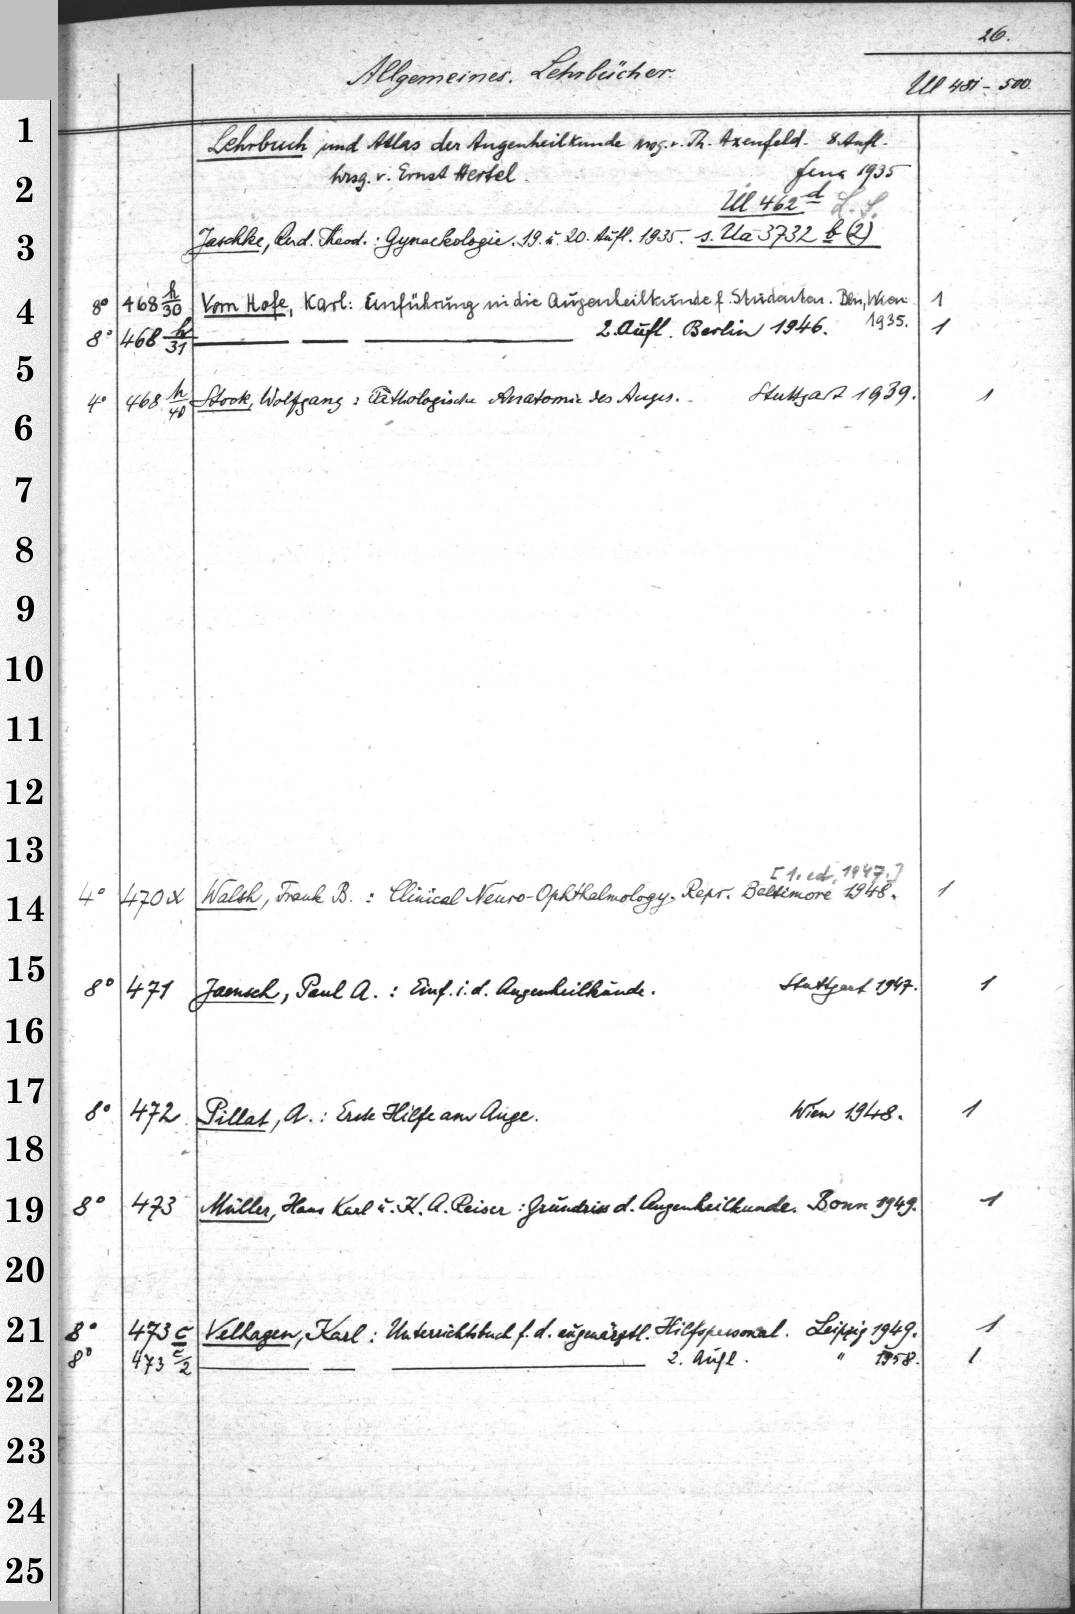 26.
Allgemeines. Lehrbücher.
Ul 481 - 500.
1
Lehrbuch und Atlas der Augenheilkunde v. Th. Axenfeld. 8. Aufl.
2
hrsg. v. Ernst Hertel. Jena 1935
Ul 462 d L.S.
3
Jaschke, Rud. Theod.: Gynaekologie. 19. u. 20. Aufl. 1935. s. Ua 3732 b (2)
4
8° 468 h/30 Vom Hofe, Karl: Einführung in die Augenheilkunde f. Studenten. Bln, Wien 1
1935.
8° 468 h/31 2. Aufl. Berlin 1946. 1
5
4° 468 h/40 Stock, Wolfgang: Pathologische Anatomie des Auges. Stuttgart 1939. 1
6
7
8
9
10
11
12
13
[1. ed. 1947.]
14
4° 470 x Walsh, Frank B.: Clinical Neuro-Ophthalmology. Repr. Baltimore 1948. 1
15
8° 471 Jaensch, Paul A.: Einf. i. d. Augenheilkunde. Stuttgart 1947. 1
16
17
8° 472 Pillat, A.: Erste Hilfe am Auge. Wien 1948. 1
18
19
8° 473 Müller, Hans Karl u. K. A. Reiser: Grundriss d. Augenheilkunde. Bonn 1949. 1
20
21
8° 473 c Velhagen, Karl: Unterrichtsbuch f. d. augenärztl. Hilfspersonal. Leipzig 1949. 1
8° 473 c/2 2. Aufl. " 1958. 1
22
23
24
25